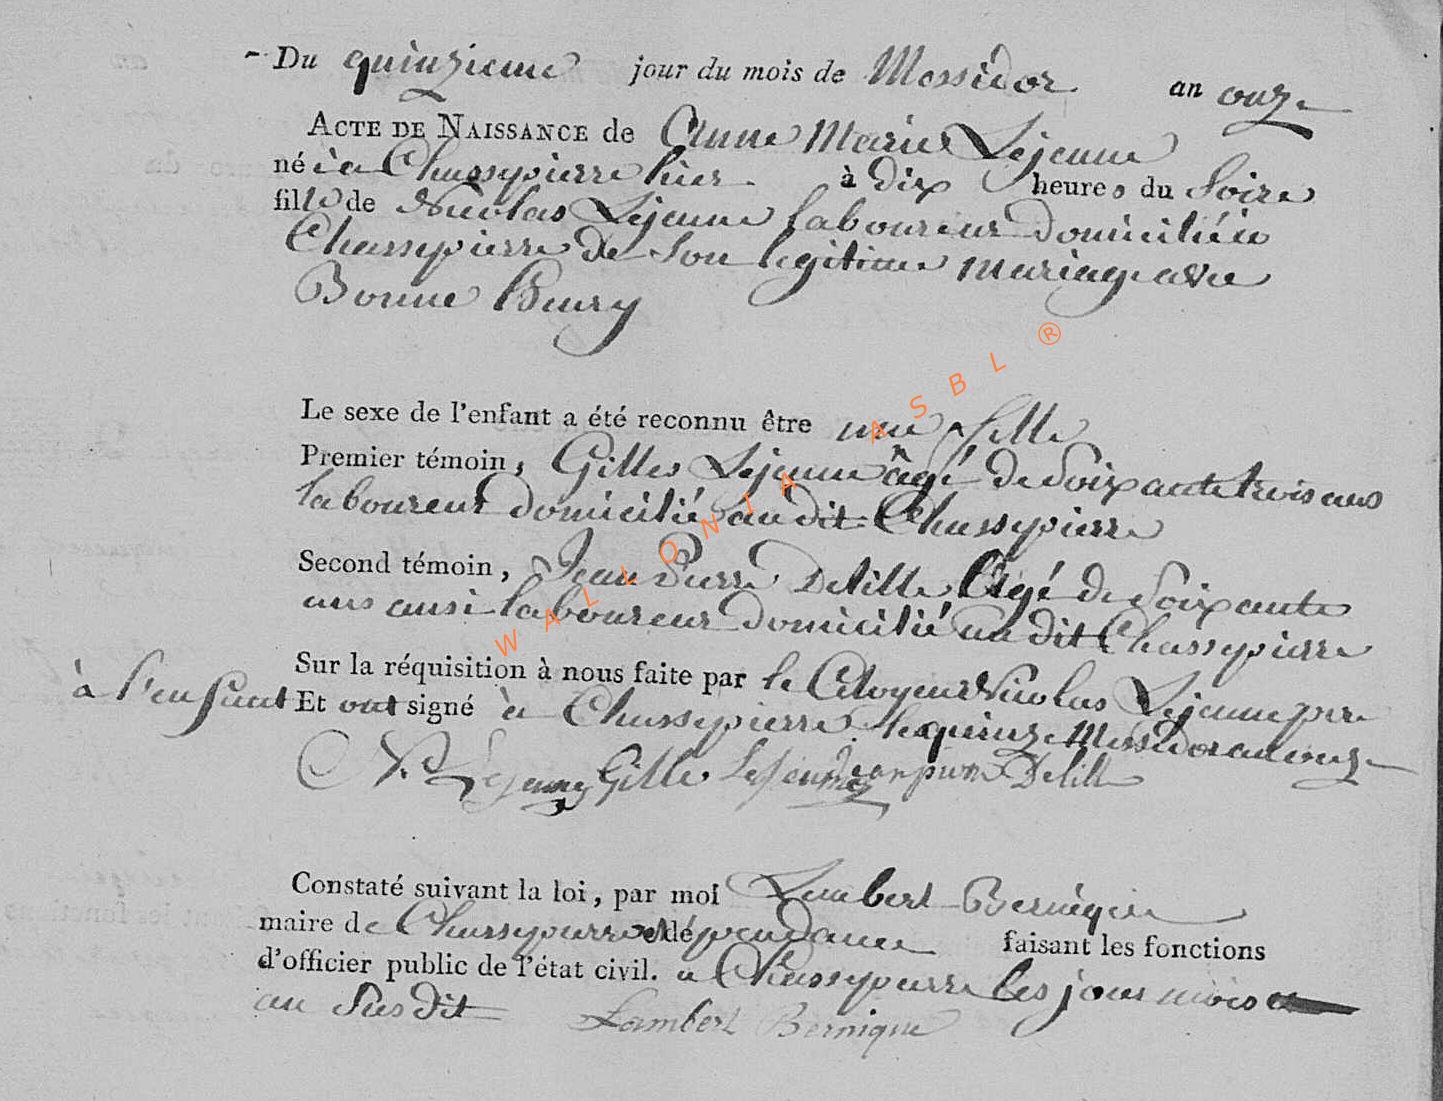 Du quinzieme jour du mois de Messidor an onze
ACTE DE NAISSANCE de Anne Marie Lejeune
née à Chassepierre hier à dix heures du Soire
fille de Nicolas Lejeune laboureur domicilié à
Chassepierre de son legitime mariage avec
Bonne Henry
Le sexe de l'enfant a été reconnu être une fille
Premier témoin, Gilles Lejeune âgé de Soixante trois ans
laboureur domicilié au dit Chassepierre
Second témoin, Jean Pierre Delille Agé de Soixante
ans ausi laboureur domicilié au dit Chassepierre
Sur la réquisition à nous faite par le Citoyen Nicolas Lejeune pere
à l'enfant Et ont signé à Chassepierre le quinze Messidor an onze
N. Lejeune Gille Lejeune Jean pierre Delille
Constaté suivant la loi, par moi Lambert Bernique
maire de Chassepierre et dépendance faisant les fonctions
d'officier public de l'état civil. a Chassepierre les jour mois et
an susdit Lambert Bernique
WALLONIA ASBL ®